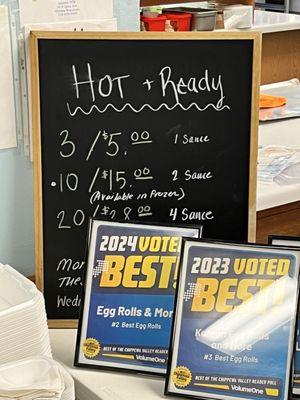 HOT + Ready
3 / $5.00 1 Sauce
10 / $15.00 2 Sauce
(Available in Frozen)
20 / $28.00 4 Sauce
2024 VOTED
BEST!
Egg Rolls & Mor
#2 Best Egg Rolls
BEST OF THE CHIPPEWA VALLEY READER
VolumeOne
2023 VOTED
BEST!
and More
#3 Best Egg Rolls
BEST OF THE CHIPPEWA VALLEY READER POLL
VolumeOne